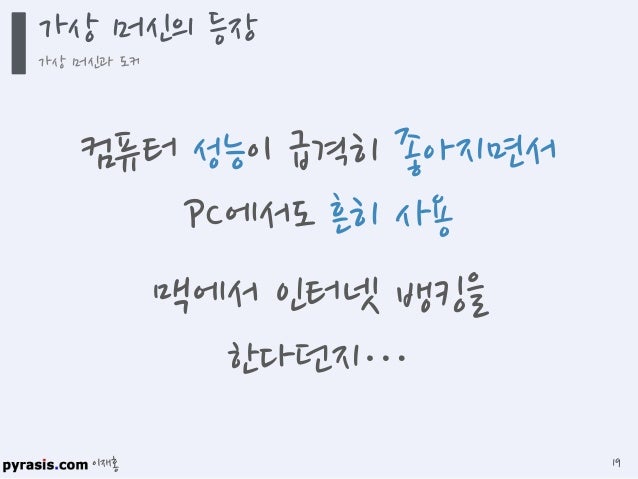 가상 머신의 등장
가상 머신과 도커
컴퓨터 성능이 급격히 좋아지면서
PC에서도 흔히 사용
맥에서 인터넷 뱅킹을
한다던지...
pyrasis.com 이재홍
19